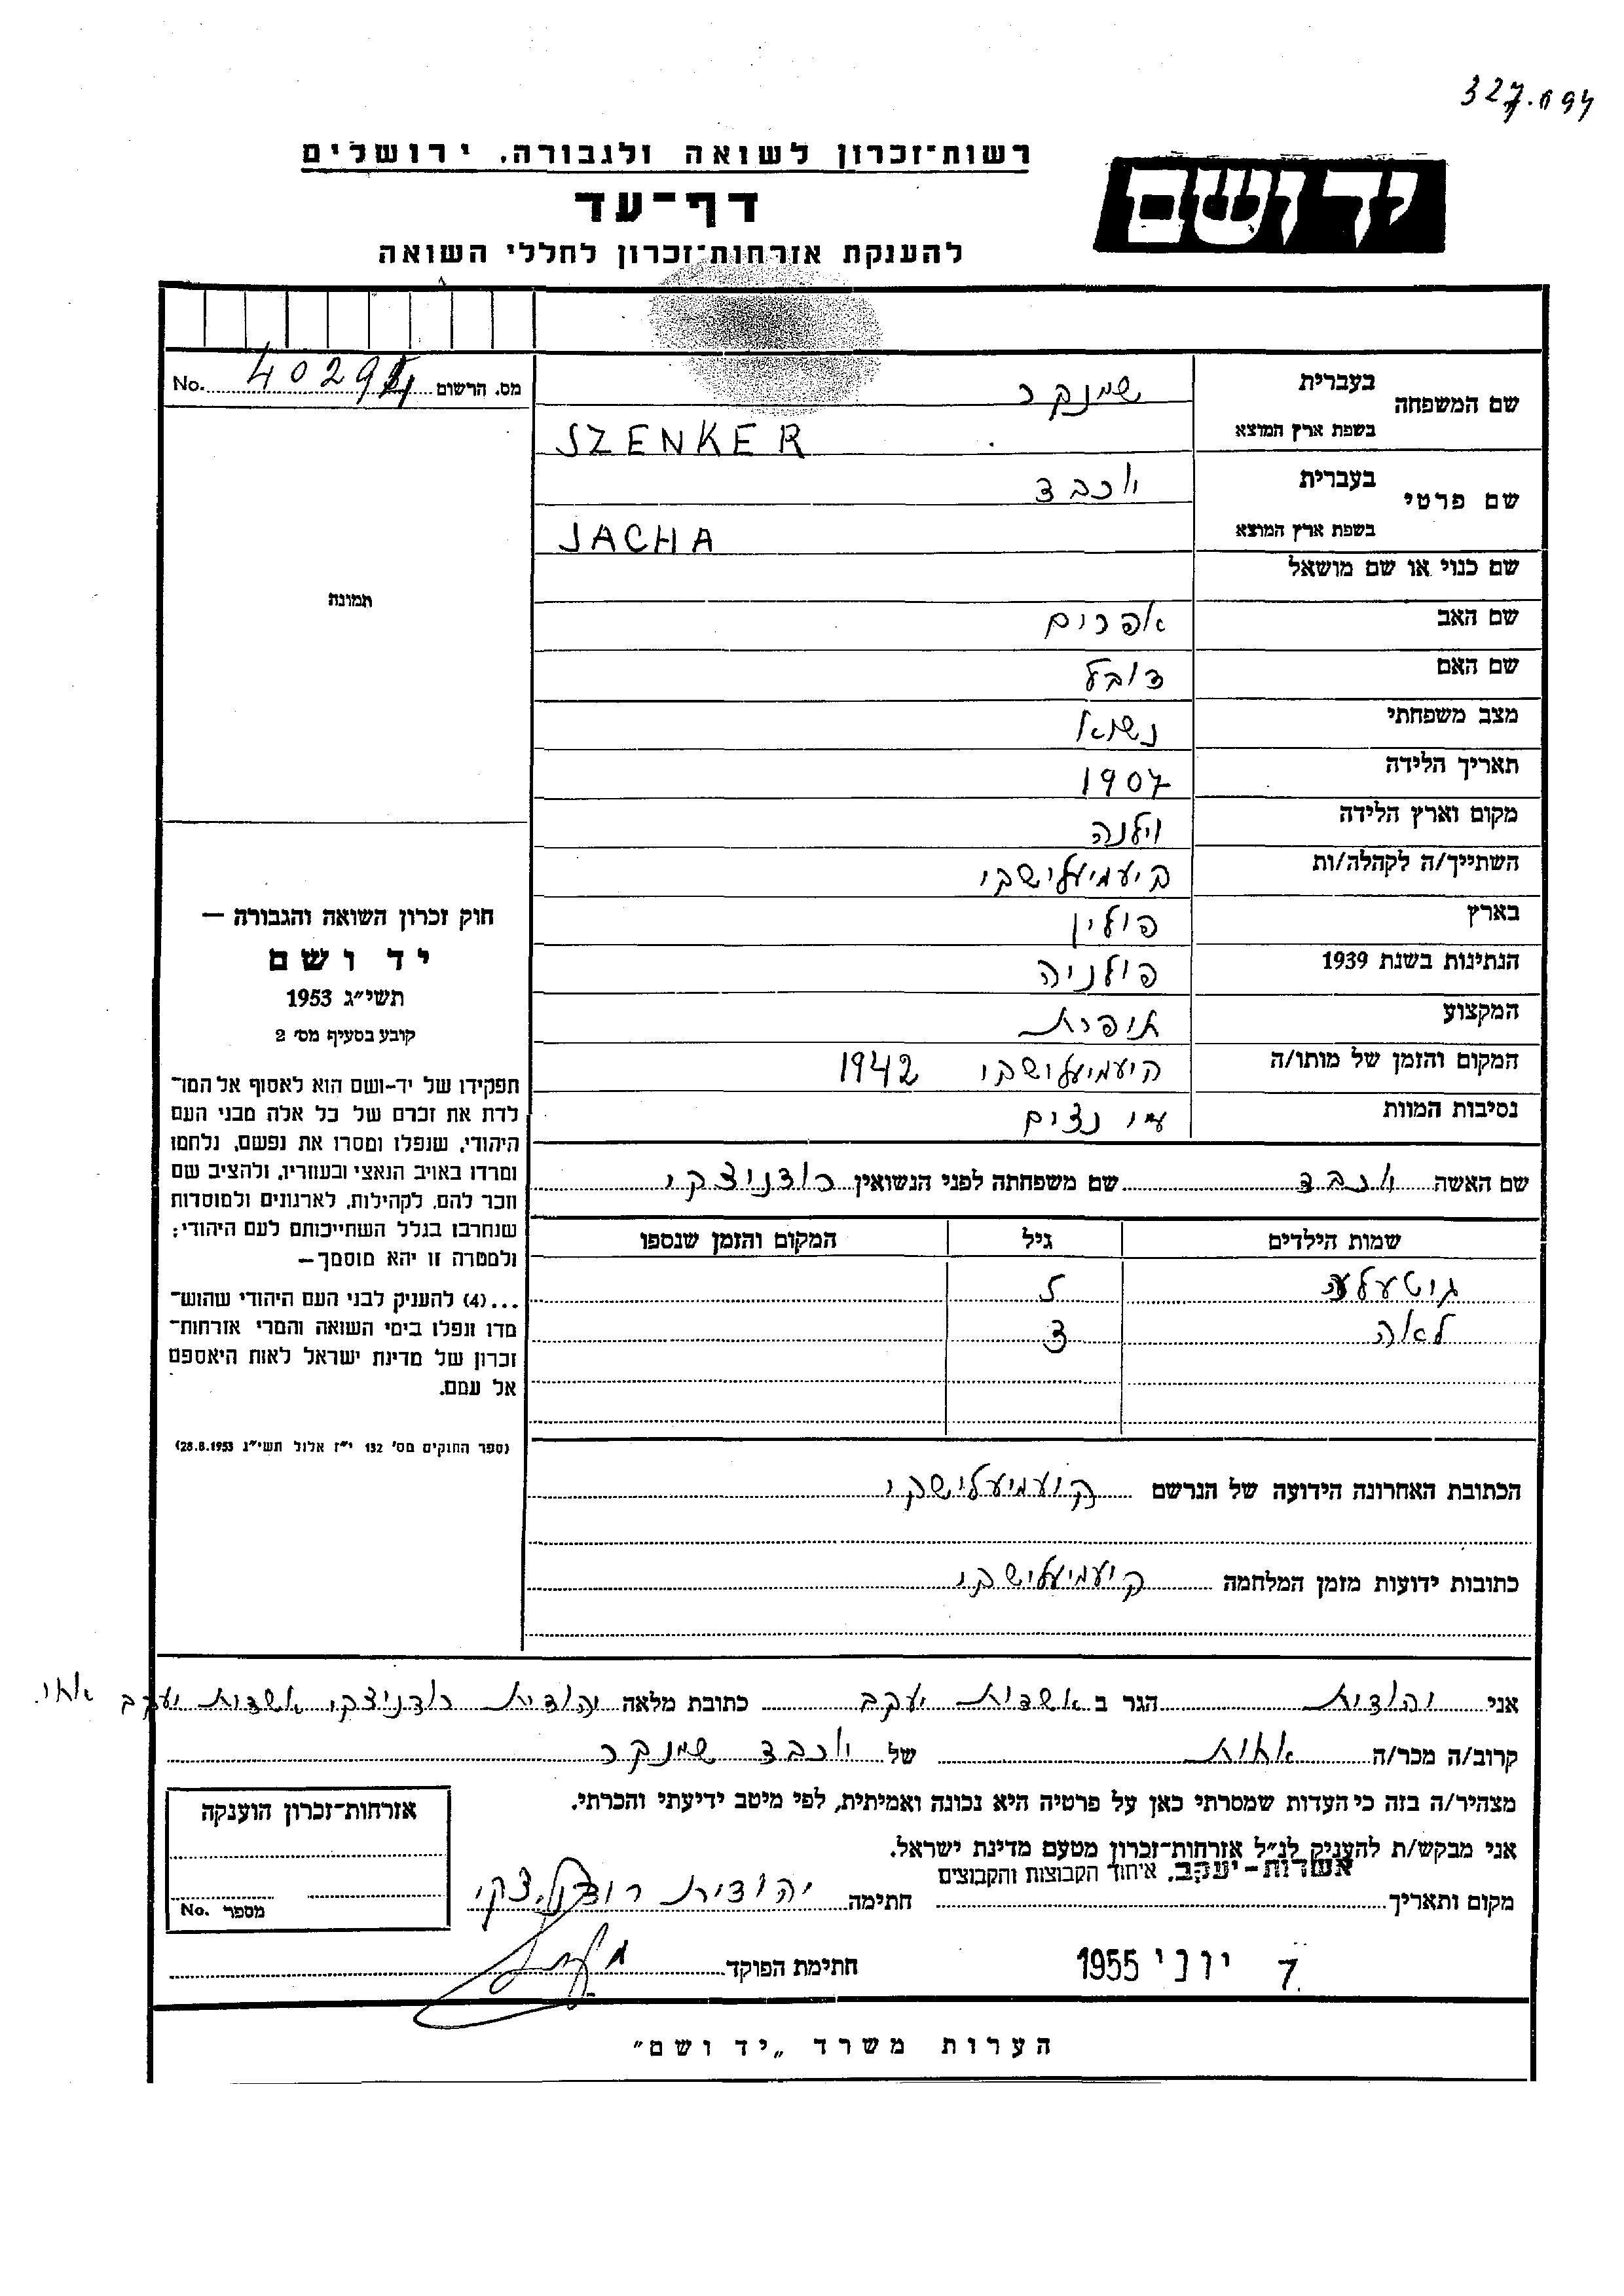 327.094
רשות־זכרון לשואה ולגבורה, ירושלים
יד ושם
דף־עד
להענקת אזרחות־זכרון לחללי השואה
מס. הרשום 40294 No.
שם המשפחה בעברית שמנקר
בשפת ארץ המוצא SZENKER
שם פרטי בעברית יוכבד
בשפת ארץ המוצא JACHA
שם כנוי או שם מושאל
שם האב אפרים
שם האם
מצב משפחתי נשוא
תאריך הלידה 1907
מקום וארץ הלידה וילנה
השתייך/ה לקהלה/ות קיעמיעלישקי
בארץ פולין
הנתינות בשנת 1939 פולניה
המקצוע תופרת
המקום והזמן של מותו/ה קיעמיעלישקי 1942
נסיבות המוות ע״י נצים
שם האשה יוכבד שם משפחתה לפני הנשואין רודניצקי
שמות הילדים גיל המקום והזמן שנספו
גוטעלע 5
לאה 3
הכתובת האחרונה הידועה של הנרשם קיעמיעלישקי
כתובות ידועות מזמן המלחמה קיעמיעלישקי
תמונה
חוק זכרון השואה והגבורה —
יד ושם
תשי״ג 1953
קובע בסעיף מס׳ 2
תפקידו של יד־ושם הוא לאסוף אל המו־
לדת את זכרם של כל אלה מבני העם
היהודי, שנפלו ומסרו את נפשם, נלחמו
ומרדו באויב הנאצי ובעוזריו, ולהציב שם
וזכר להם, לקהילות, לארגונים ולמוסדות
שנחרבו בגלל השתייכותם לעם היהודי;
ולמטרה זו יהא מוסמך—
...(4) להעניק לבני העם היהודי שהוש־
מדו ונפלו בימי השואה והמרי אזרחות־
זכרון של מדינת ישראל לאות היאספם
אל עמם.
(ספר החוקים מס׳ 132 י״ז אלול תשי״ג 28.8.1953)
אני יהודית הגר ב אשדות יעקב כתובת מלאה יהודית רודניצקי אשדות יעקב אחו.
קרוב/ה מכר/ה אחות של יוכבד שמנקר
מצהיר/ה בזה כי העדות שמסרתי כאן על פרטיה היא נכונה ואמיתית, לפי מיטב ידיעתי והכרתי.
אני מבקש/ת להעניק לנ״ל אזרחות־זכרון מטעם מדינת ישראל.
אשדות־יעקב, איחוד הקבוצות והקבוצים
מקום ותאריך חתימה יהודית רודניצקי
7 יוני 1955 חתימת הפוקד
אזרחות־זכרון הוענקה
מספר No.
הערות משרד „יד ושם״